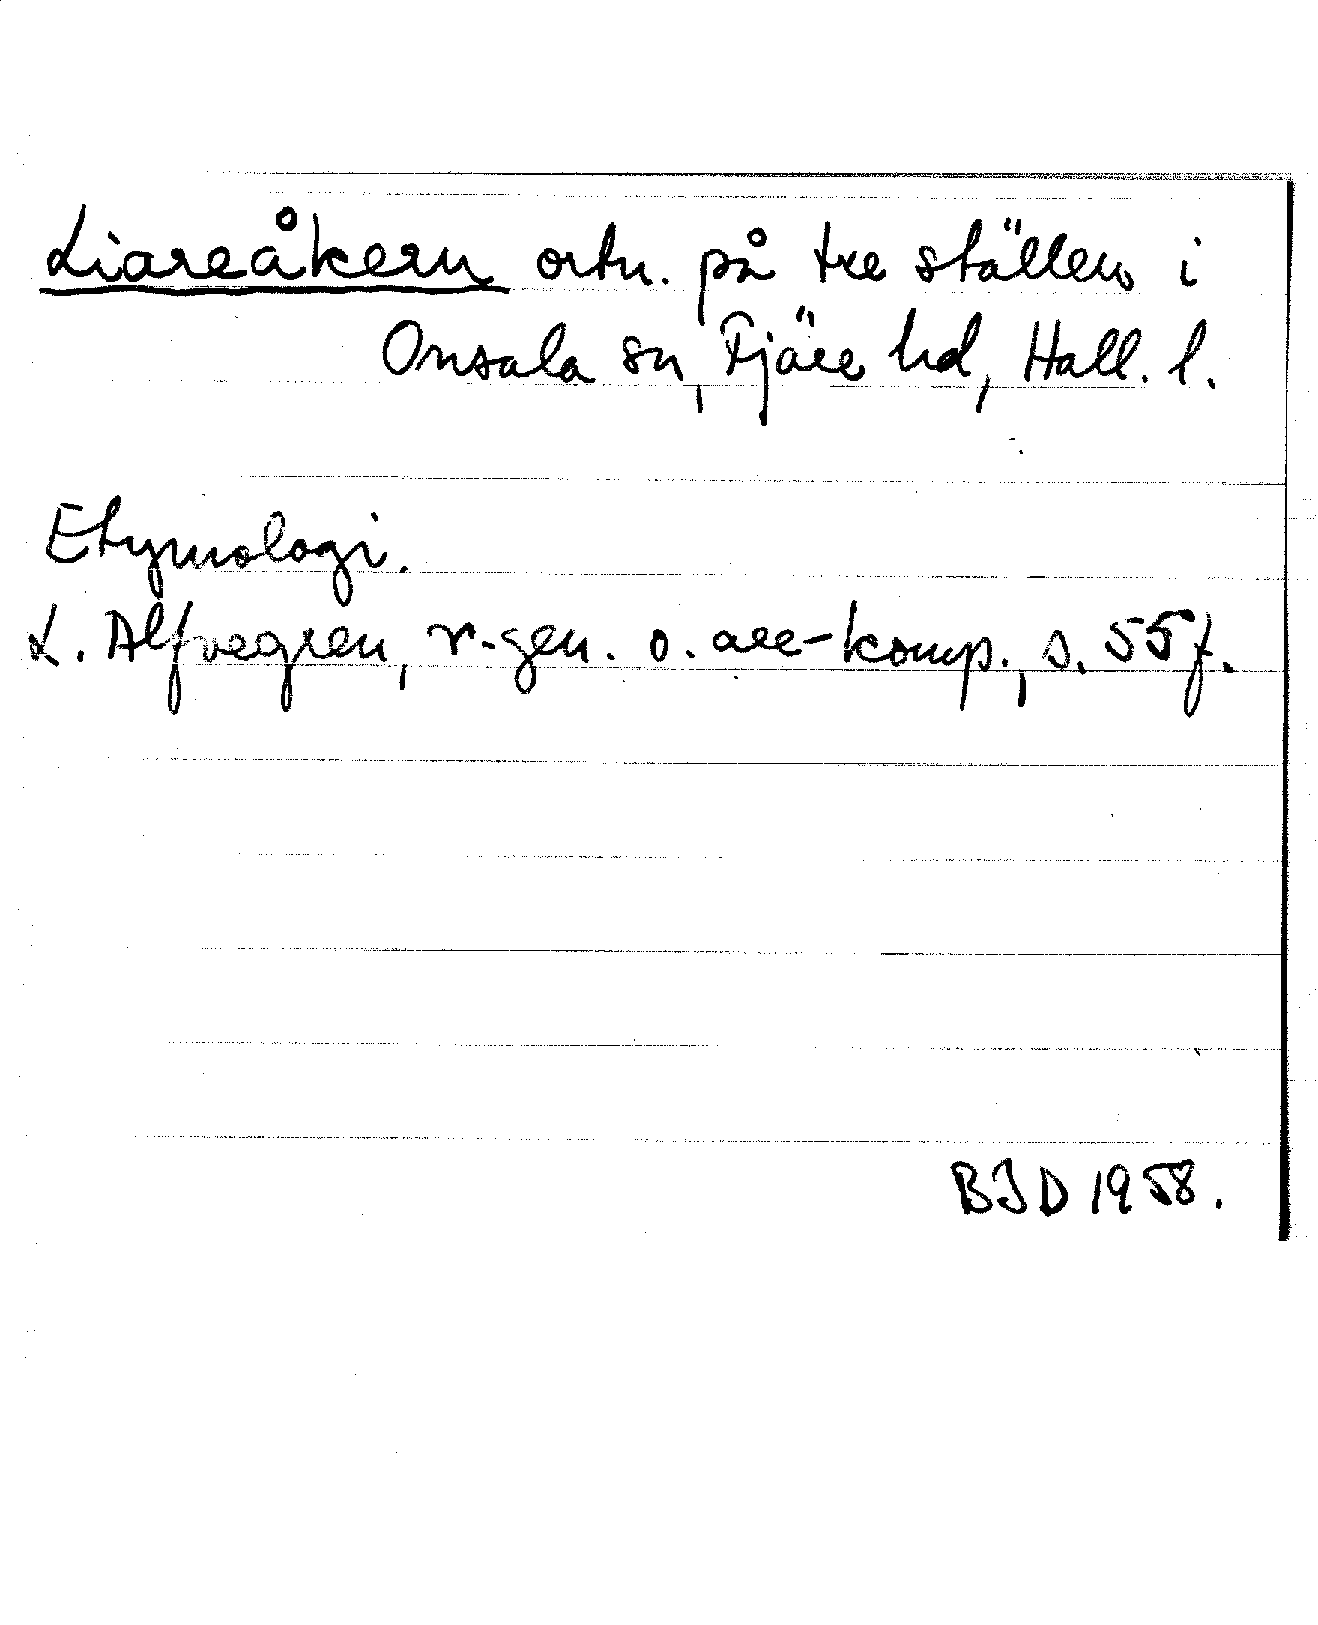 Liareåkern ortn. på tre ställen i
Onsala sn, Fjäre hd, Hall. l.
Etymologi.
L. Alfvegren, r-gen. o. are-komp., s. 55f.
BJD 1958.